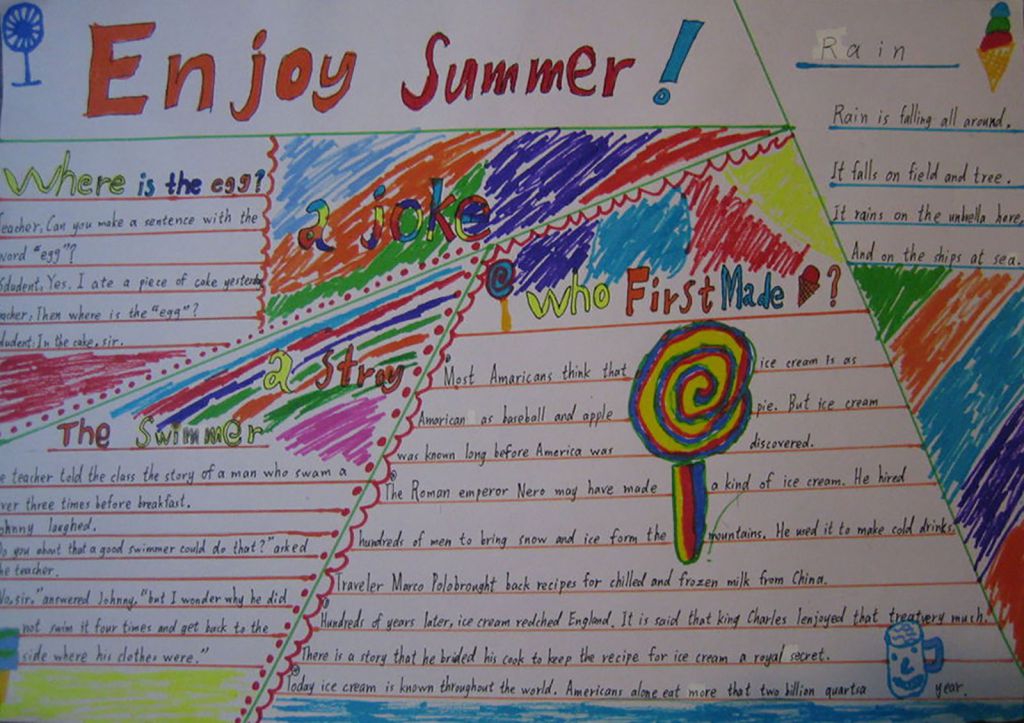 Enjoy Summer!
Rain
Rain is falling all around.
It falls on field and tree.
It rains on the unbella here,
And on the ships at sea.
Where is the egg?
eacher, Can you make a sentence with the
word "egg"?
Sdudent, Yes. I ate a piece of cake yesterday
acher, Then where is the "egg"?
dudent: In the cake, sir.
a joke
a Stroy
The Swimmer
e teacher told the class the story of a man who swam a
ver three times before breakfast.
ohnny laughed.
Do you about that a good swimmer could do that?" arked
he teacher.
No, sir," answered Johnny, "but I wonder why he did
not swim it four times and get back to the
side where his clothes were."
Who First Made ?
Most Amaricans think that ice cream is as
American as baseball and apple pie. But ice cream
was known long before America was discovered.
The Roman emperor Nero may have made a kind of ice cream. He hired
hundreds of men to bring snow and ice form the mountains. He used it to make cold drinks.
Traveler Marco Polobrought back recipes for chilled and frozen milk from China.
Hundreds of years later, ice cream redched England. It is said that king Charles lenjoyed that treatvery much.
There is a story that he brided his cook to keep the recipe for ice cream a royal secret.
Today ice cream is known throughout the world. Americans alone eat more that two billion quartsa year.